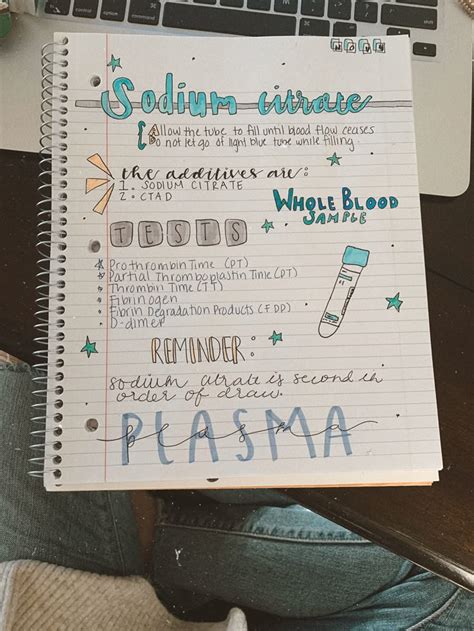 NOV 4
Sodium citrate
Allow the tube to fill until blood flow ceases
Do not let go of light blue tube while filling.
the additives are:
1. SODIUM CITRATE
2. CTAD
WHOLE BLOOD
SAMPLE
TESTS
Prothrombin Time (PT)
Partial Thromboplastin Time (PT)
Thrombin Time (TT)
Fibrinogen
Fibrin Degradation Products (FDP)
D-dimer
REMINDER:
sodium citrate is second in
order of draw.
PLASMA
plasma
command
option